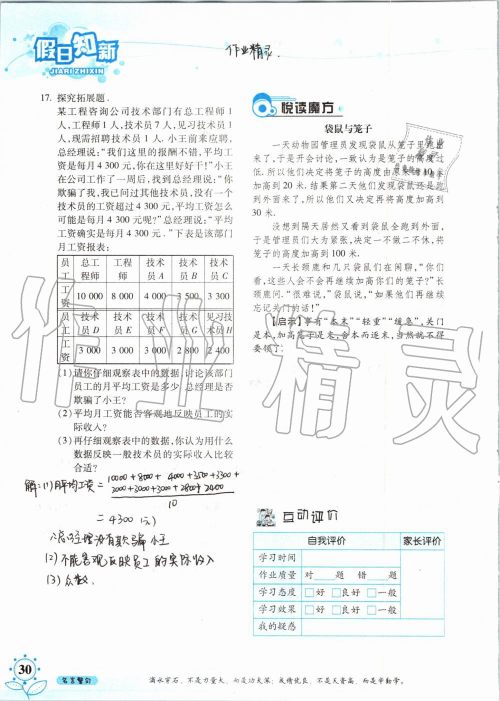 假日知新
JIARI ZHIXIN
作业精灵
17. 探究拓展题.
某工程咨询公司技术部门有总工程师1
人,工程师1人,技术员7人,见习技术员1
人,现需招聘技术员1人.小王前来应聘,
总经理说:“我们这里的报酬不错,平均工
资是每月4 300元,你在这里好好干!”小王
在公司工作了一周后,找到总经理说:“你
欺骗了我,我已问过其他技术员,没有一个
技术员的工资超过4 300元,平均工资怎么
可能是每月4 300元呢?”总经理说:“平均
工资确实是每月4 300元.”下表是该部门
月工资报表:
员工 总工程师 工程师 技术员A 技术员B 技术员C
工资 10 000 8 000 4 000 3 500 3 300
员工 技术员D 技术员E 技术员F 技术员G 见习技术员H
工资 3 000 3 000 3 000 2 800 2 400
(1)请你仔细观察表中的数据,讨论该部门
员工的月平均工资是多少,总经理是否
欺骗了小王?
(2)平均月工资能否客观地反映员工的实
际收入?
(3)再仔细观察表中的数据,你认为用什么
数据反映一般技术员的实际收入比较
合适?
解:(1)月平均工资=
10000+8000+4000+3500+3300+
3000+3000+3000+2800+2400
10
=4300(元)
∴总经理没有欺骗小王
(2)不能客观反映员工的实际收入
(3)众数.
悦读魔方
袋鼠与笼子
一天动物园管理员发现袋鼠从笼子里跑出
来了,于是开会讨论,一致认为是笼子的高度过
低.所以他们决定将笼子的高度由原来的10米
加高到20米.结果第二天他们发现袋鼠还是跑
到外面来了,所以他们又决定再将高度加高到
30米.
没想到隔天居然又看到袋鼠全跑到外面,
于是管理员们大为紧张,决定一不做二不休,将
笼子的高度加高到100米.
一天长颈鹿和几只袋鼠们在闲聊,“你们
看,这些人会不会再继续加高你们的笼子?”长
颈鹿问.“很难说,”袋鼠说,“如果他们再继续
忘记关门的话!”
【启示】事有“本末”“轻重”“缓急”,关门
是本,加高笼子是末,舍本而逐末,当然就不得
要领了.
作业精灵
互动评价
自我评价 家长评价
学习时间
作业质量 对 题 错 题
学习态度 □好 □良好 □一般
学习效果 □好 □良好 □一般
我的疑惑
30
名言警句
滴水穿石,不是力量大,而是功夫深;成绩优良,不是天资高,而是辛勤学。